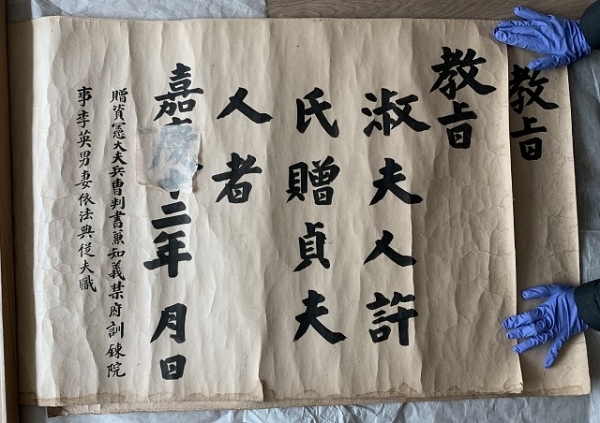 教旨
教旨
淑夫人許
氏贈貞夫
人者
嘉慶十三年 月 日
贈資憲大夫兵曹判書兼知義禁府訓鍊院
事李英男妻依法典從夫職